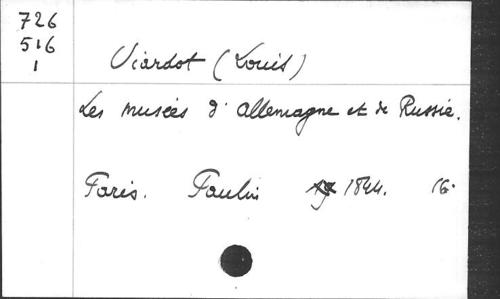 726
516
1
Viardot (Louis)
Les musées d'Allemagne et de Russie.
Paris. Paulin 1844. 16.